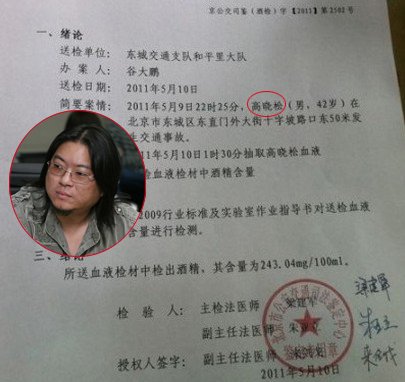 京公交司鉴(酒检)字【2011】第2502号
一、绪论
送检单位：东城交通支队和平里大队
办 案 人：谷大鹏
送检日期：2011年5月10日
简要案情：2011年5月9日22时25分，高晓松（男、42岁）在
北京市东城区东直门外大街十字坡路口东50米发
生交通事故。
年5月10日1时30分抽取高晓松血液
血液检材中酒精含量
2009行业标准及实验室作业指导书对送检血液
含量进行检测。
三、结论
所送血液检材中检出酒精，其含量为243.04mg/100ml。
检 验 人：主检法医师 梁建军
副主任法医师
副主任法医师
授权人签字：
2011年5月10日